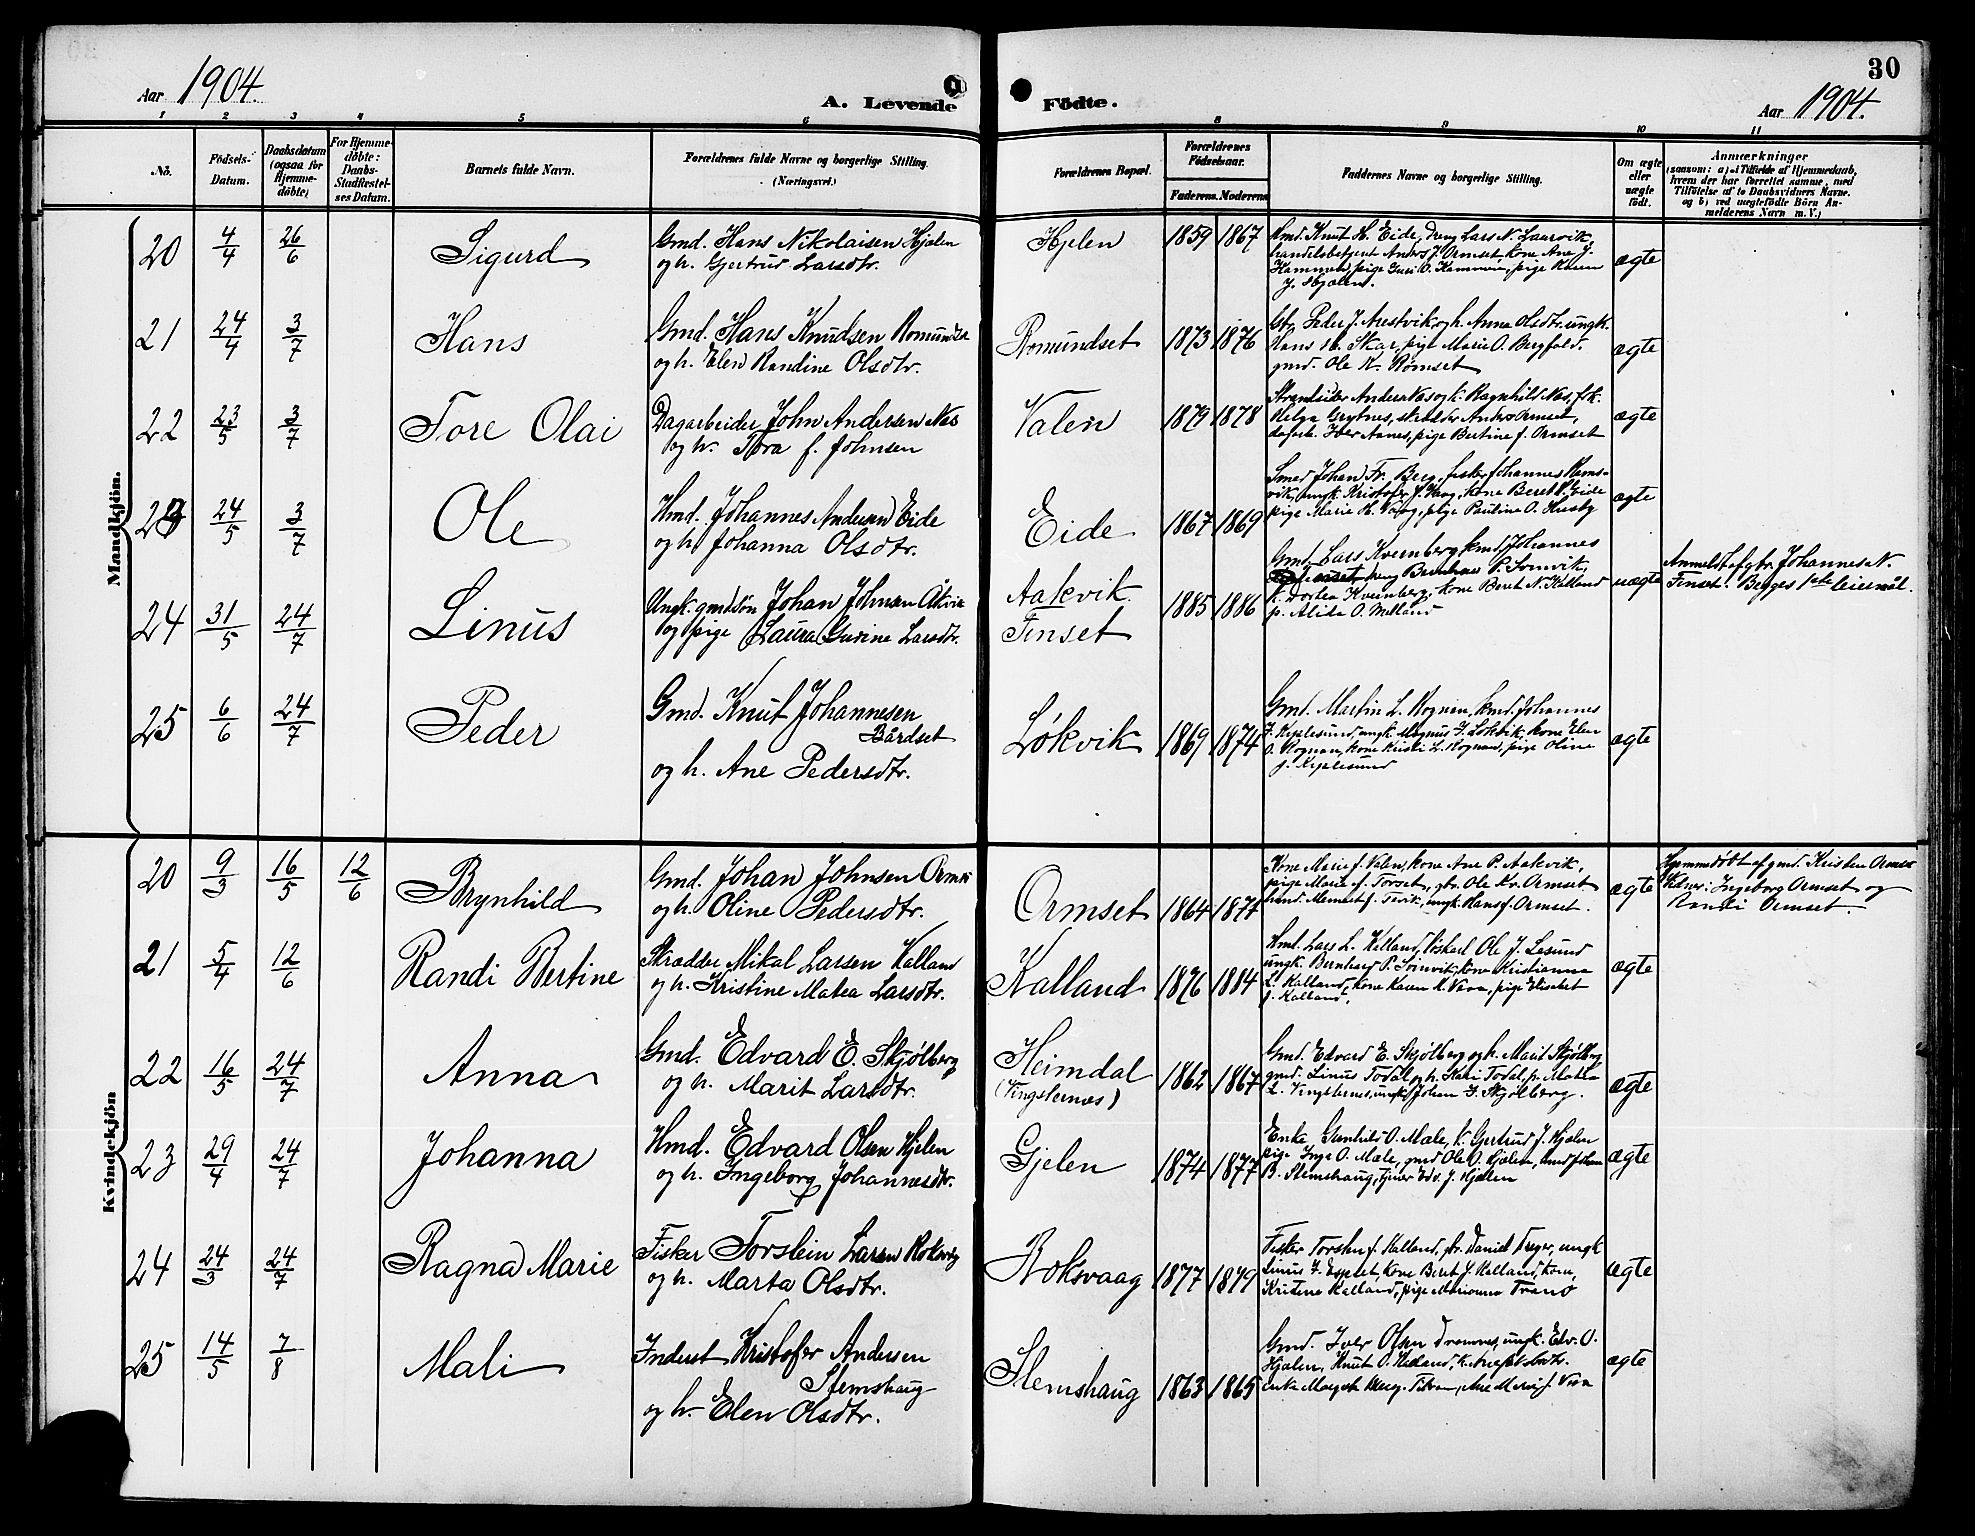 30
Aar 1904.
A. Levende
Födte.
Aar 1904.
1 2 3 4 5 6 8 9 10 11
No.
Födsels-
Datum.
Daabsdatum
(ogsaa for
Hjemme-
döbte)
For Hjemme-
döbte:
Daabs-
Stadfæstel-
ses Datum.
Barnets fulde Navn.
Forældrenes fulde Navne og borgerlige Stilling.
(Næringsvei.)
Forældrenes Bopæl.
Forældrenes
Födselsaar.
Faderens. Moderens
Faddernes Navne og borgerlige Stilling.
Om ægte
eller
uægte
födt.
Anmærkninger
(saasom: a) i Tilfælde af Hjemmedaab,
hvem der har forrettet samme, med
Tilföielse af to Daabsvidners Navne.
og b) ved uægtefödte Börn An-
melderens Navn m. V.)
Mandkjön.
20 4/4 26/6 Sigurd
Gmd. Hans Nikolaisen Hjelen
og h. Gjertrud Larsdtr.
Hjelen 1859 1867
Gmd. Knut H. Eide, dreng Lars N. Laurvik,
handelsbetjent Anders J. Ormset, kone Ane J.
J. Hjelen.
ægte
21 24/4 3/7 Hans
Gmd. Hans Knudsen Romundset
og h. Elen Randine Olsdtr.
Romundset 1873 1876
Peder J. Arestvik og h. Anna Olsdtr. ungk.
Hans H. Skar, pige Marie O. Bergfald.
gmd. Ole K. Rømset
ægte
22 23/5 3/7 Tore Olai
Dagarbeider John Andersen Næs
og h. Tora J. Johnsen
Valen 1879 1878
Strandsider Anders Næs og k. Ragnhild Næs, fhk.
Helga Grytnes, skrædder Anders Ormset,
Iver Aanes, pige Bertine J. Ormset
ægte
23 24/5 3/7 Ole
Hmd. Johannes Andersen Eide
og h. Johanna Olsdtr.
Eide 1867 1869
Smed Johan Fr. Berg, fisker Johannes Rams-
vik, ungk. Kristofer J. Vaag, kone Beret K. Eide
pige Marie H. Vaag, pige Pauline O. Husby
ægte
24 31/5 24/7 Linus
Ungk. gmdsøn Johan Johnsen Åkvik
og pige Laura Gurine Larsdtr.
Aakvik
Tinset
1885 1886
Gmd. Lars Kvernberg, kmd. Johannes
dreng Bernhard P. Soinvik,
k. Dortea Kvernberg, kone Beret N. Kalland
p. Alida O. Melland
uægte
Anmeldt af gbr. Johannes N.
Tinset. Begges 1ste leiermål.
25 6/6 24/7 Peder
Gmd. Knut Johannesen
Bårdset
og h. Ane Pedersdtr.
Løkvik 1869 1874
Gmd. Martin L. Rognan, kmd. Johannes
J. Kjplesund, ungk. Magnus J. Løkvik, kone Elen
O. Rognan, kone Kristi L. Rognan, pige Oline
J. Kjplesund
ægte
Kvindekjön
20 9/3 16/5 12/6 Brynhild
Gmd. Johan Johnsen Ormset
og h. Oline Pedersdtr.
Ormset 1864 1874
Kone Marie J. Valen, kone Ane P. Aakvik,
pige Marie J. Torset, gbr. Ole Kr. Ormset
ungk. Hans J. Ormset.
ægte
Hjemmedøbt af gmd. Kristen Ormset
Vidner: Ingeborg Ormset og
Randi Ormset.
21 5/4 12/6 Randi Bertine
Skrædder Mikal Larsen Kalland
og h. Kristine Matea Larsdtr.
Kalland 1876 1884
Hmd. Lars L. Kalland, Ole J. Lesund
ungk. Bernhard P. Soinvik, kone Kristianna
L. Kalland, kone Karen K. Vaan, pige Elisabet
J. Kalland.
ægte
22 16/5 24/7 Anna
Gmd. Edvard E. Skjølberg
og h. Marit Larsdtr.
Heimdal
(Vingsternæs)
1862 1867
Gmd. Edvard E. Skjølberg og h. Marit Skjølberg
gmd. Linus Todal og h. Kari Todal, p. Matea
L. Vingsternes, ungk. Johan J. Skjølberg.
ægte
23 29/4 24/7 Johanna
Hmd. Edvard Olsen Hjelen
og h. Ingeborg Johannesdtr.
Gjelen 1874 1877
Enke Gunhild O. Mæle, k. Gjertrud J. Hjelen
pige Inga O. Mæle, gmd. Ole O. Hjelen, hmd. Johan
B. Stemshaug, tjener Edv. J. Hjelen
ægte
24 24/3 24/7 Ragna Marie
Fisker Torstein Larsen Roksvåg
og h. Marta Olsdtr.
Roksvaag 1877 1879
Fisker Torsten J. Kalland, gbr. Daniel Treger, ungk.
Linus J. Espset, kone Beret J. Kalland, kone
Kristine Kalland, pige Marianna Tranø
ægte
25 14/5 7/8 Mali
Inderst Kristofer Andersen
Stemshaug
og h. Elen Olsdtr.
Stemshaug 1863 1865
Gmd. Iver Olsen Dromnes, ungk. Edv. O.
Hjelen, Knut O. Kalland,
enke Marget Ane Marie J. Vaan
ægte